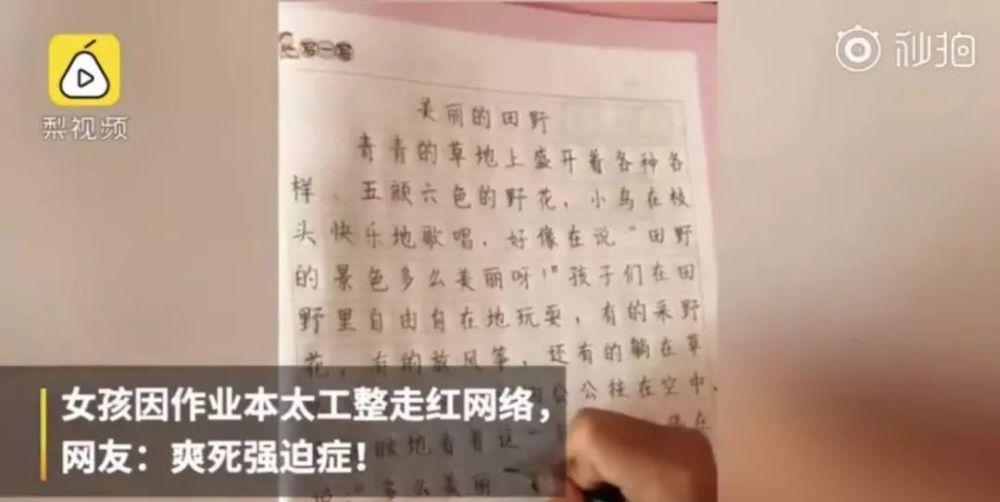 梨视频
秒拍
写一写
美丽的田野
青青的草地上盛开着各种各
样、五颜六色的野花，小鸟在枝
头快乐地歌唱，好像在说“田野
的景色多么美丽呀！”孩子们在田
野里自由自在地玩耍，有的采野
花，有的放风筝，还有的躺在草
公公挂在空中，
眯地看着这一
多么美丽
女孩因作业本太工整走红网络，
网友：爽死强迫症！